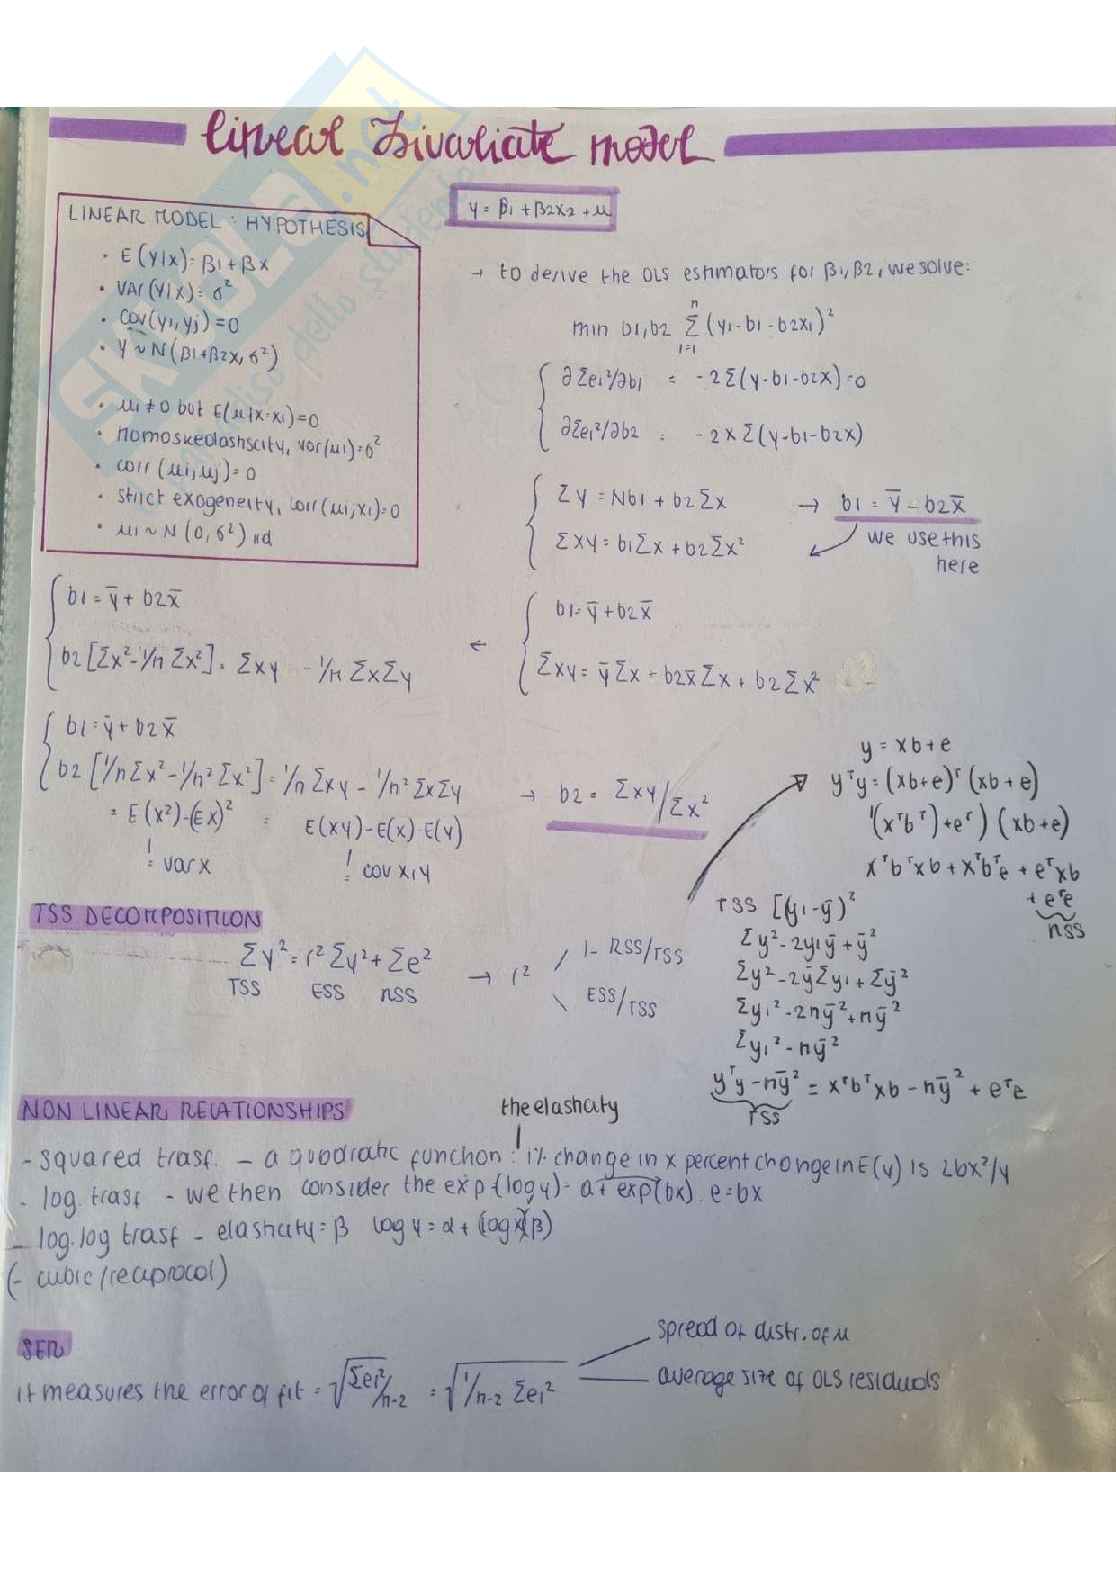 linear bivariate model
LINEAR MODEL : HYPOTHESIS
· E(y|x)= β1+βx
· VAR(y|x)= σ²
· cov(yi,yj)=0
· y~N(β1+β2x,σ²)
· μi≠0 but E(μ|x=xi)=0
· homoskedasticity, var(μi)=σ²
· corr(μi,μj)=0
· strict exogeneity, corr(μi,xi)=0
· μi~N(0,σ²) iid
y = β1+β2x2+μ
→ to derive the OLS estimators for β1,β2, we solve:
min b1,b2 Σ(yi-b1-b2xi)²
n
i=1
∂Σei²/∂b1 = -2Σ(y-b1-b2x)=0
∂Σei²/∂b2 = -2xΣ(y-b1-b2x)
Σy = Nb1 + b2Σx → b1 = ȳ - b2x̄
Σxy = b1Σx + b2Σx²
we use this
here
b1= ȳ + b2x̄
Σxy = ȳΣx - b2x̄Σx + b2Σx²
←
b1 = ȳ + b2x̄
b2[Σx²-1/n Σx²] = Σxy - 1/n ΣxΣy
b1=ȳ+b2x̄
b2 [1/nΣx²-1/n²Σx²] = 1/n Σxy - 1/n² ΣxΣy → b2 = Σxy/Σx²
= E(x²)-(Ex)² = E(xy)-E(x)·E(y)
! = var x
! = cov x,y
y = xb+e
yᵀy=(xb+e)ᵀ(xb+e)
(xᵀbᵀ)+eᵀ) (xb+e)
xᵀbᵀxb + xᵀbᵀe + eᵀxb
+ eᵀe
RSS
TSS DECOMPOSITION
Σy²= r²Σy²+Σe²
TSS ESS RSS
→ r²
1- RSS/TSS
ESS/TSS
TSS [(yi-ȳ)²
Σy²-2yiȳ+ȳ²
Σy²-2ȳΣyi+Σȳ²
Σyi²-2nȳ²+nȳ²
Σyi²-nȳ²
yᵀy-nȳ² = xᵀbᵀxb - nȳ² + eᵀe
TSS
NON LINEAR RELATIONSHIPS
the elasticity
- squared trasf. - a quadratic function : 1% change in x percent change in E(y) is 2bx²/y
- log. trasf - we then consider the exp (log y)= a+exp(bx). e=bx
- log.log trasf - elasticity= β log y = α + (log x)(β)
(- cubic/reciprocal)
SER
it measures the error of fit = √Σei²/n-2 = √1/n-2 Σei²
spread of distr. of μ
average size of OLS residuals